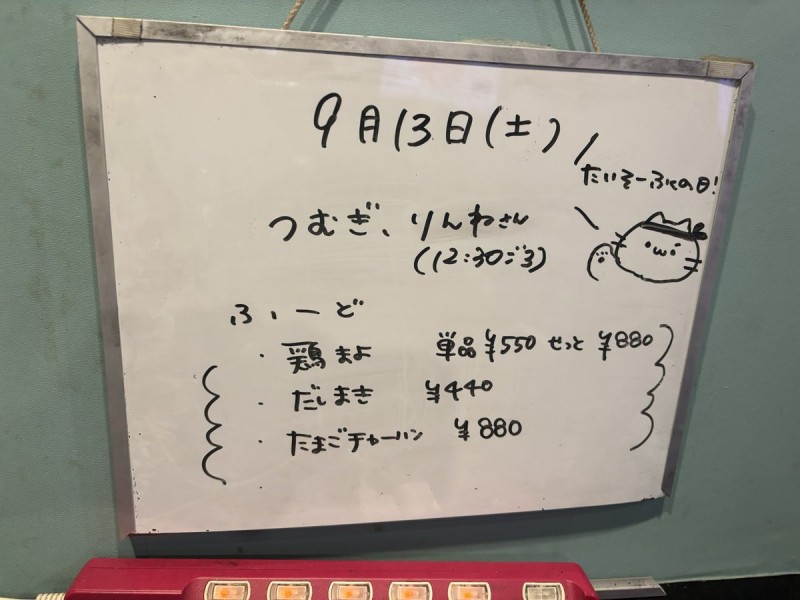 9月13日(土)
たいそーふくの日!
つむぎ、りんねさん
(12:30ごろ)
ふーど
・鶏まよ 単品¥550 せっと¥880
・だしまき ¥440
・たまごチャーハン ¥880